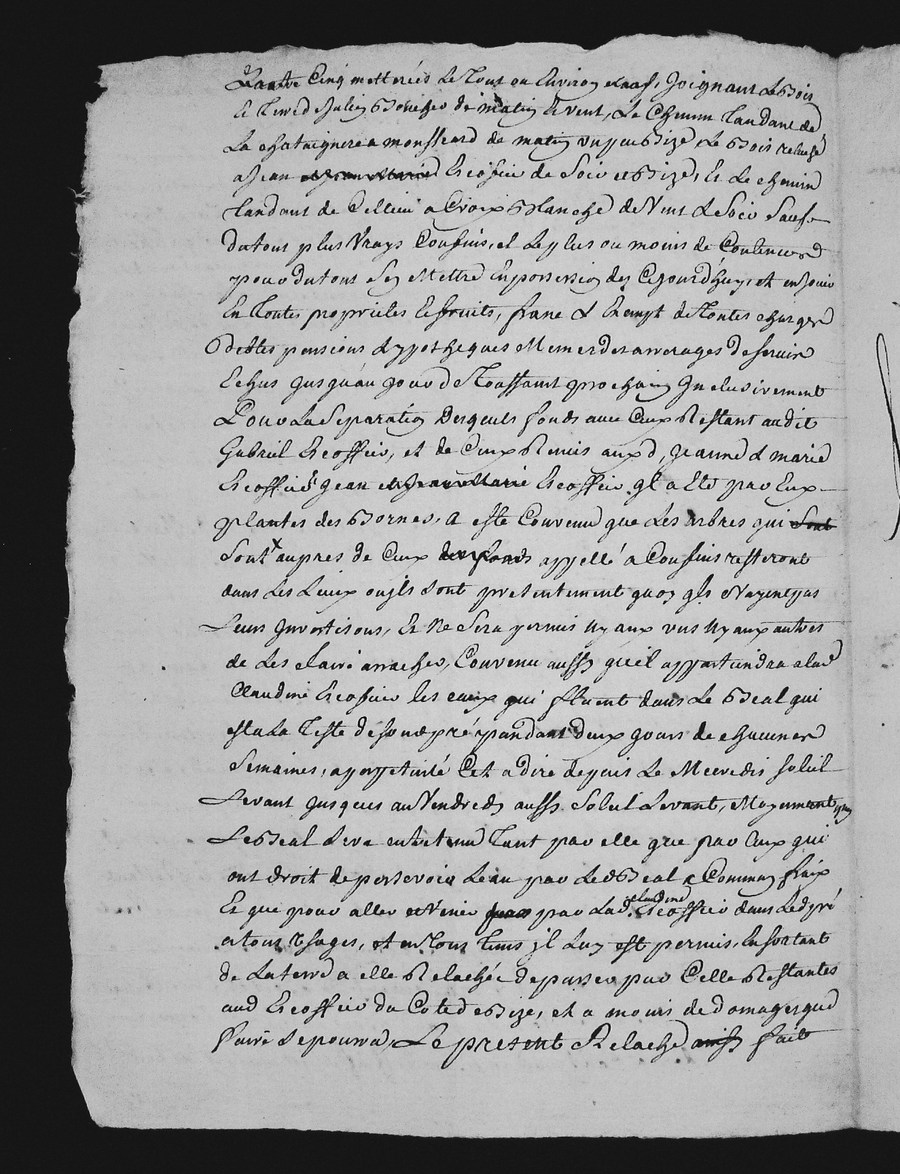 quatre Cinq mettréés Le Tout ou Environ Joignant Le Bois
Et Terre d Julien de matin Et vent, Le Chemin Tandant de
La chataignere a monsseard de matin Bize, Le Bois relaché
a Jean Escoffier de Soir et Bize, Et Le chemin
Tandant de Cellieu a Croix Blanche de Vent & Soir Sauf
du tout plus Vrays Confins, et Le plus ou moins de Contenue
pour du tout Sen Mettre En possession dez Cejourdhuy, et en Jouir
En Toutes proprietés Et fruits, franc & Exempt de Toutes charges
Debtes pensions & ypotheques Memes des arrerages de servis
Echus Jusquau Jour de Toussaint prochain Inclusivement
Pour La Separation Desquels fonds avec Ceux Restant audit
Gabriel Escoffier, et de Ceux Remis auxd. Jeanne & marie
Escoffier Jean et Jean Marie Escoffier Il a Eté par Eux
plantés des Bornes, a esté Convenu que Les arbres qui Sont
Sont aupres de Ceux des fonds appellé a Confins resteront
dans Les Lieux ou ils Sont presentement quoy qils N'ayent pas
Leurs Invortisons, Et Ne Sera permis Ny aux uns Ny aux autres
de Les faire arracher, Convenu aussy qu'il appartiendra a lad.
Claudine Escoffier les eaux qui fluent dans Le Béal qui
est a La Teste de son pré pandant deux Jours de chacunes
Semaines, a perpetuité C'et a dire depuis Le Mecredis Soleil
Levant Jusques au Vendredy aussy Soleil Levant, Moyennant que
Le Beal Sera entretenu Tant par elle que par Ceux qui
ont droit de persevoir Leau par Led. Béal a Commun fraix
Et que pour aller et Venir par Lad. Claudine Escoffier dans Led. pré
a tous Usages, et en Tous Tems il Luy est permis, En sortant
de La terre a elle Relachée de passer par Celle Restantes
aud Escoffier du Coté de Bize, et a moins de domages que
faire Se pourra, Le present Relaché ainsy fait